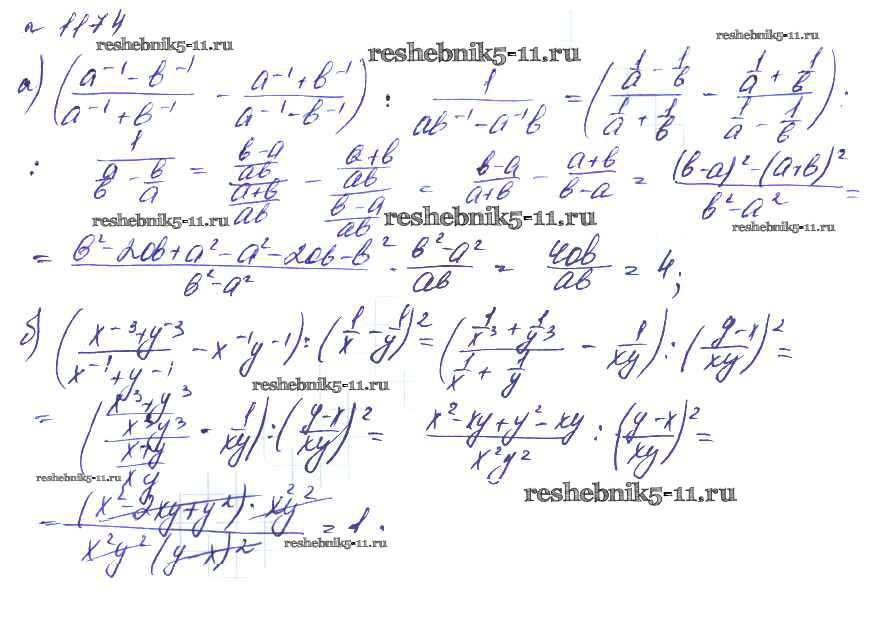 № 1174
reshebnik5-11.ru reshebnik5-11.ru reshebnik5-11.ru
а) ((a⁻¹ - b⁻¹)/(a⁻¹ + b⁻¹) - (a⁻¹ + b⁻¹)/(a⁻¹ - b⁻¹)) : 1/(ab⁻¹ - a⁻¹b) = ((1/a - 1/b)/(1/a + 1/b) - (1/a + 1/b)/(1/a - 1/b)) :
: 1/(a/b - b/a) = ((b-a)/ab)/((a+b)/ab) - ((a+b)/ab)/((b-a)/ab) = (b-a)/(a+b) - (a+b)/(b-a) = ((b-a)² - (a+b)²)/(b² - a²) =
reshebnik5-11.ru reshebnik5-11.ru reshebnik5-11.ru
= (b² - 2ab + a² - a² - 2ab - b²)/(b² - a²) · (b² - a²)/ab = 4ab/ab = 4;
б) ((x⁻³ + y⁻³)/(x⁻¹ + y⁻¹) - x⁻¹y⁻¹) : (1/x - 1/y)² = ((1/x³ + 1/y³)/(1/x + 1/y) - 1/xy) : ((y-x)/xy)² =
reshebnik5-11.ru
= (((x³ + y³)/x³y³)/((x+y)/xy) - 1/xy) : ((y-x)/xy)² = (x² - xy + y² - xy)/x²y² : ((y-x)/xy)² =
reshebnik5-11.ru reshebnik5-11.ru
= ((x² - 2xy + y²) · x²y²)/(x²y²(y-x)²) = 1.
reshebnik5-11.ru